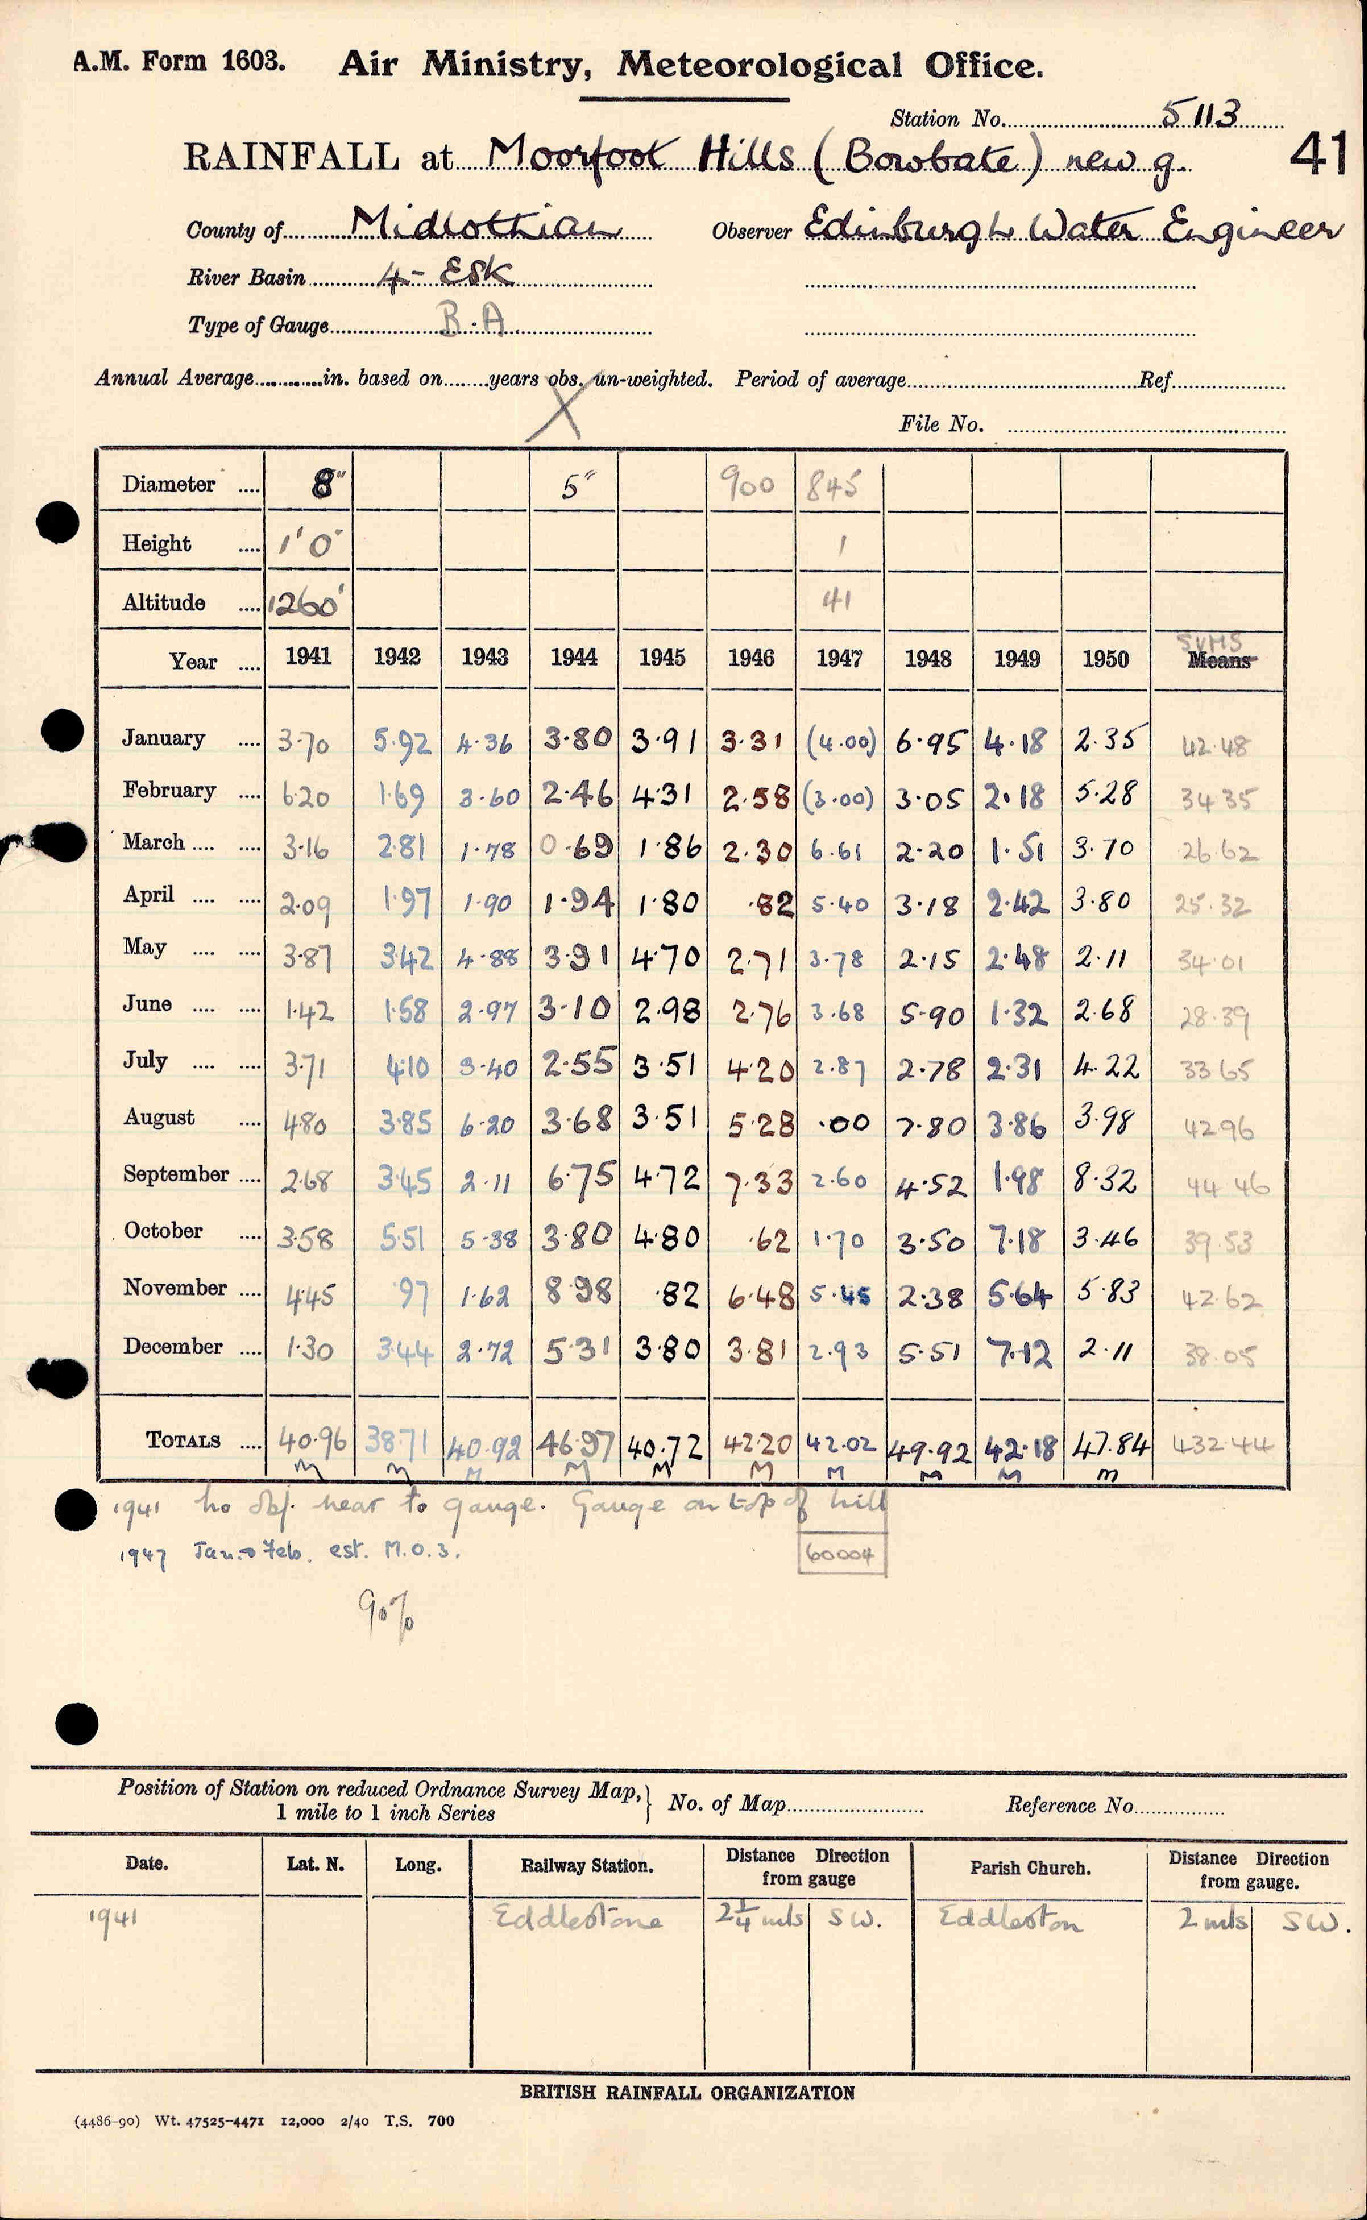 A.M. Form 1603. Air Ministry, Meteorological Office.
Station No. 5113
RAINFALL at Moorfoot Hills (Bowbate) new g. 41
County of Midlothian Observer Edinburgh Water Engineer
River Basin 4 - Esk
Type of Gauge B.A
Annual Average in. based on years obs. un-weighted. Period of average Ref.
X
File No.
Diameter .... 8" 5" 900 845
Height .... 1' 0" 1
Altitude .... 1260' 41
SUMS
Year .... 1941 1942 1943 1944 1945 1946 1947 1948 1949 1950 Means
January .... 3.70 5.92 4.36 3.80 3.91 3.31 (4.00) 6.95 4.18 2.35 42.48
February .... 6.20 1.69 3.60 2.46 4.31 2.58 (3.00) 3.05 2.18 5.28 34 35
March .... .... 3.16 2.81 1.78 0.69 1.86 2.30 6.61 2.20 1.51 3.70 26.62
April .... .... 2.09 1.97 1.90 1.94 1.80 .82 5.40 3.18 2.42 3.80 25.32
May .... .... 3.87 3.42 4.88 3.91 4.70 2.71 3.78 2.15 2.48 2.11 34.01
June .... .... 1.42 1.58 2.97 3.10 2.98 2.76 3.68 5.90 1.32 2.68 28.39
July .... .... 3.71 4.10 3.40 2.55 3.51 4.20 2.87 2.78 2.31 4.22 33 65
August .... 4.80 3.85 6.20 3.68 3.51 5.28 .00 7.80 3.86 3.98 42.96
September .... 2.68 3.45 2.11 6.75 4.72 7.33 2.60 4.52 1.98 8.32 44 46
October .... 3.58 5.51 5.38 3.80 4.80 .62 1.70 3.50 7.18 3.46 39.53
November .... 4.45 .97 1.62 8.98 .82 6.48 5.45 2.38 5.64 5.83 42.62
December .... 1.30 3.44 2.72 5.31 3.80 3.81 2.93 5.51 7.12 2.11 38.05
TOTALS .... 40.96 38.71 40.92 46.97 40.72 42.20 42.02 49.92 42.18 47.84 432.44
M M M M M M M M M M
1941 no obj. near to gauge. Gauge on top of hill
1947 Jan. → Feb. est. M.O.3. 60004
90%
Position of Station on reduced Ordnance Survey Map, } No. of Map Reference No.
1 mile to 1 inch Series
Date. Lat. N. Long. Railway Station. Distance Direction from gauge Parish Church. Distance Direction from gauge.
1941 Eddlestone 2¼ mls SW. Eddleston 2 mls SW.
BRITISH RAINFALL ORGANIZATION
(4486-90) Wt. 47525-4471 12,000 2/40 T.S. 700